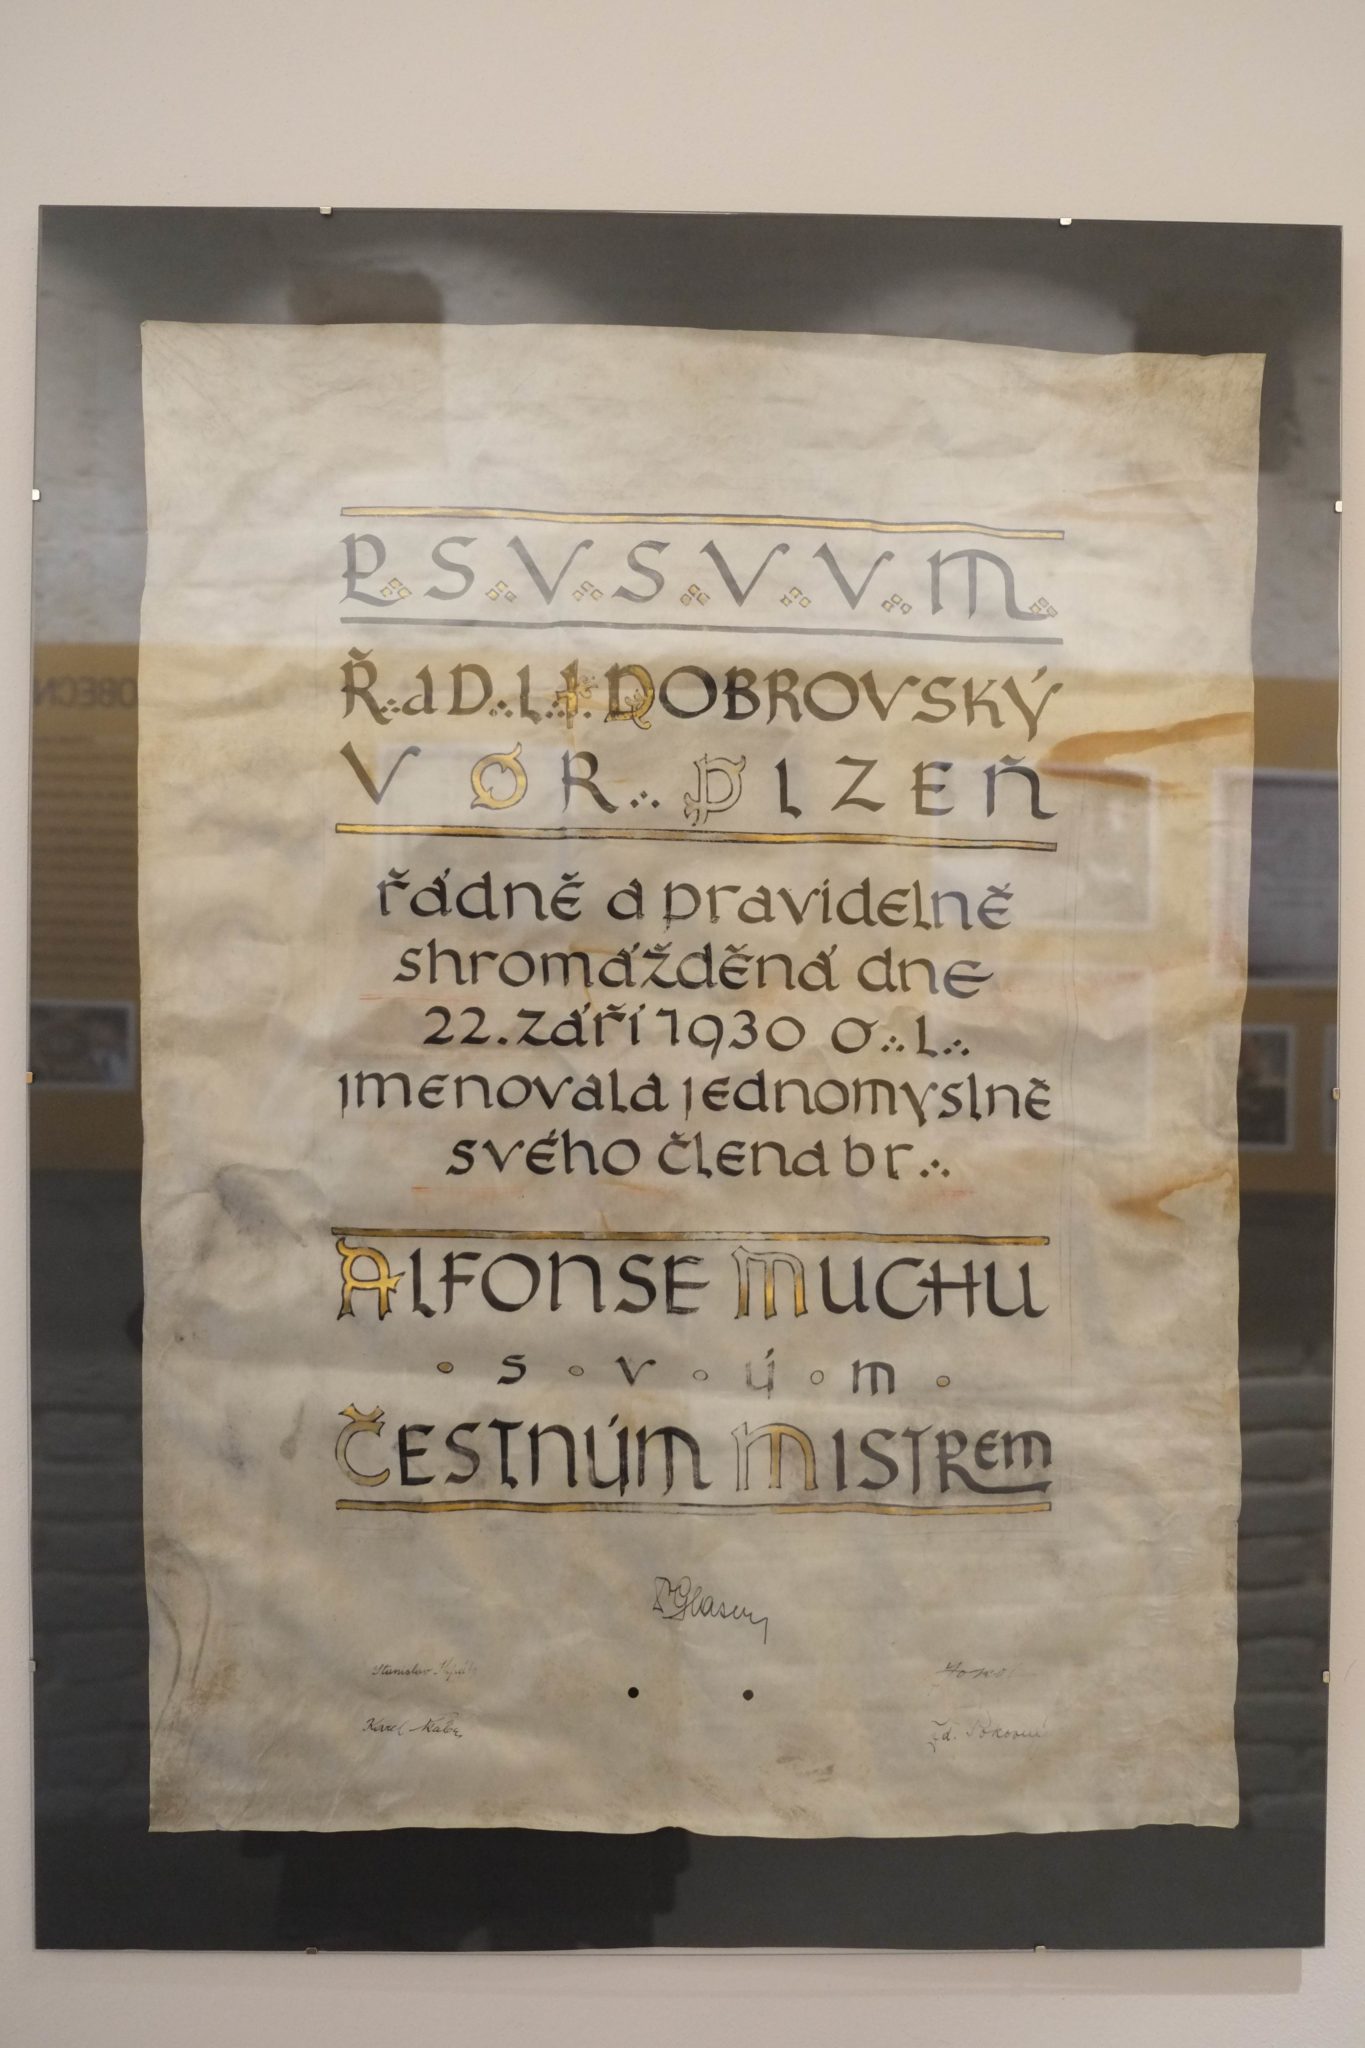 P∴S∴V∴S∴V∴V∴M∴
Ř∴ a D∴ L∴ J. DOBROVSKÝ
V OR∴ PLZEŇ
řádně a pravidelně
shromážděná dne
22. září 1930 o∴ l∴
jmenovala jednomyslně
svého člena br∴
ALFONSE MUCHU
svým
ČESTNÝM MISTREM
Stanislav
Karel
Zd. Pokorný